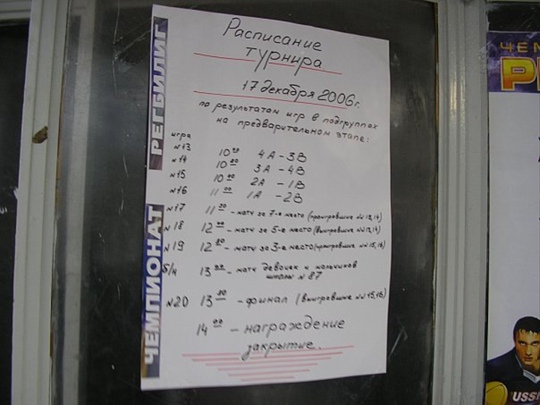 Расписание
турнира
17 декабря 2006г.
по результатам игр в подгруппах
на предварительном этапе:
игра
№13 10 00 4А-3В
№14 10 20 3А-4В
№15 10 40 2А-1В
№16 11 00 1А-2В
№17 11 30 - матч за 7-е место (проигравшие №13,14)
№18 12 00 - матч за 5-е место (выигравшие №13,14)
№19 12 30 - матч за 3-е место (проигравшие №15,16)
б/н 13 00 - матч девочек и мальчиков
школы №87
№20 13 30 - финал (выигравшие №15,16)
14 00 - награждение
закрытие.
ЧЕМПИОНАТ
РЕГБИЛИГ
ЧЕМ
USSI